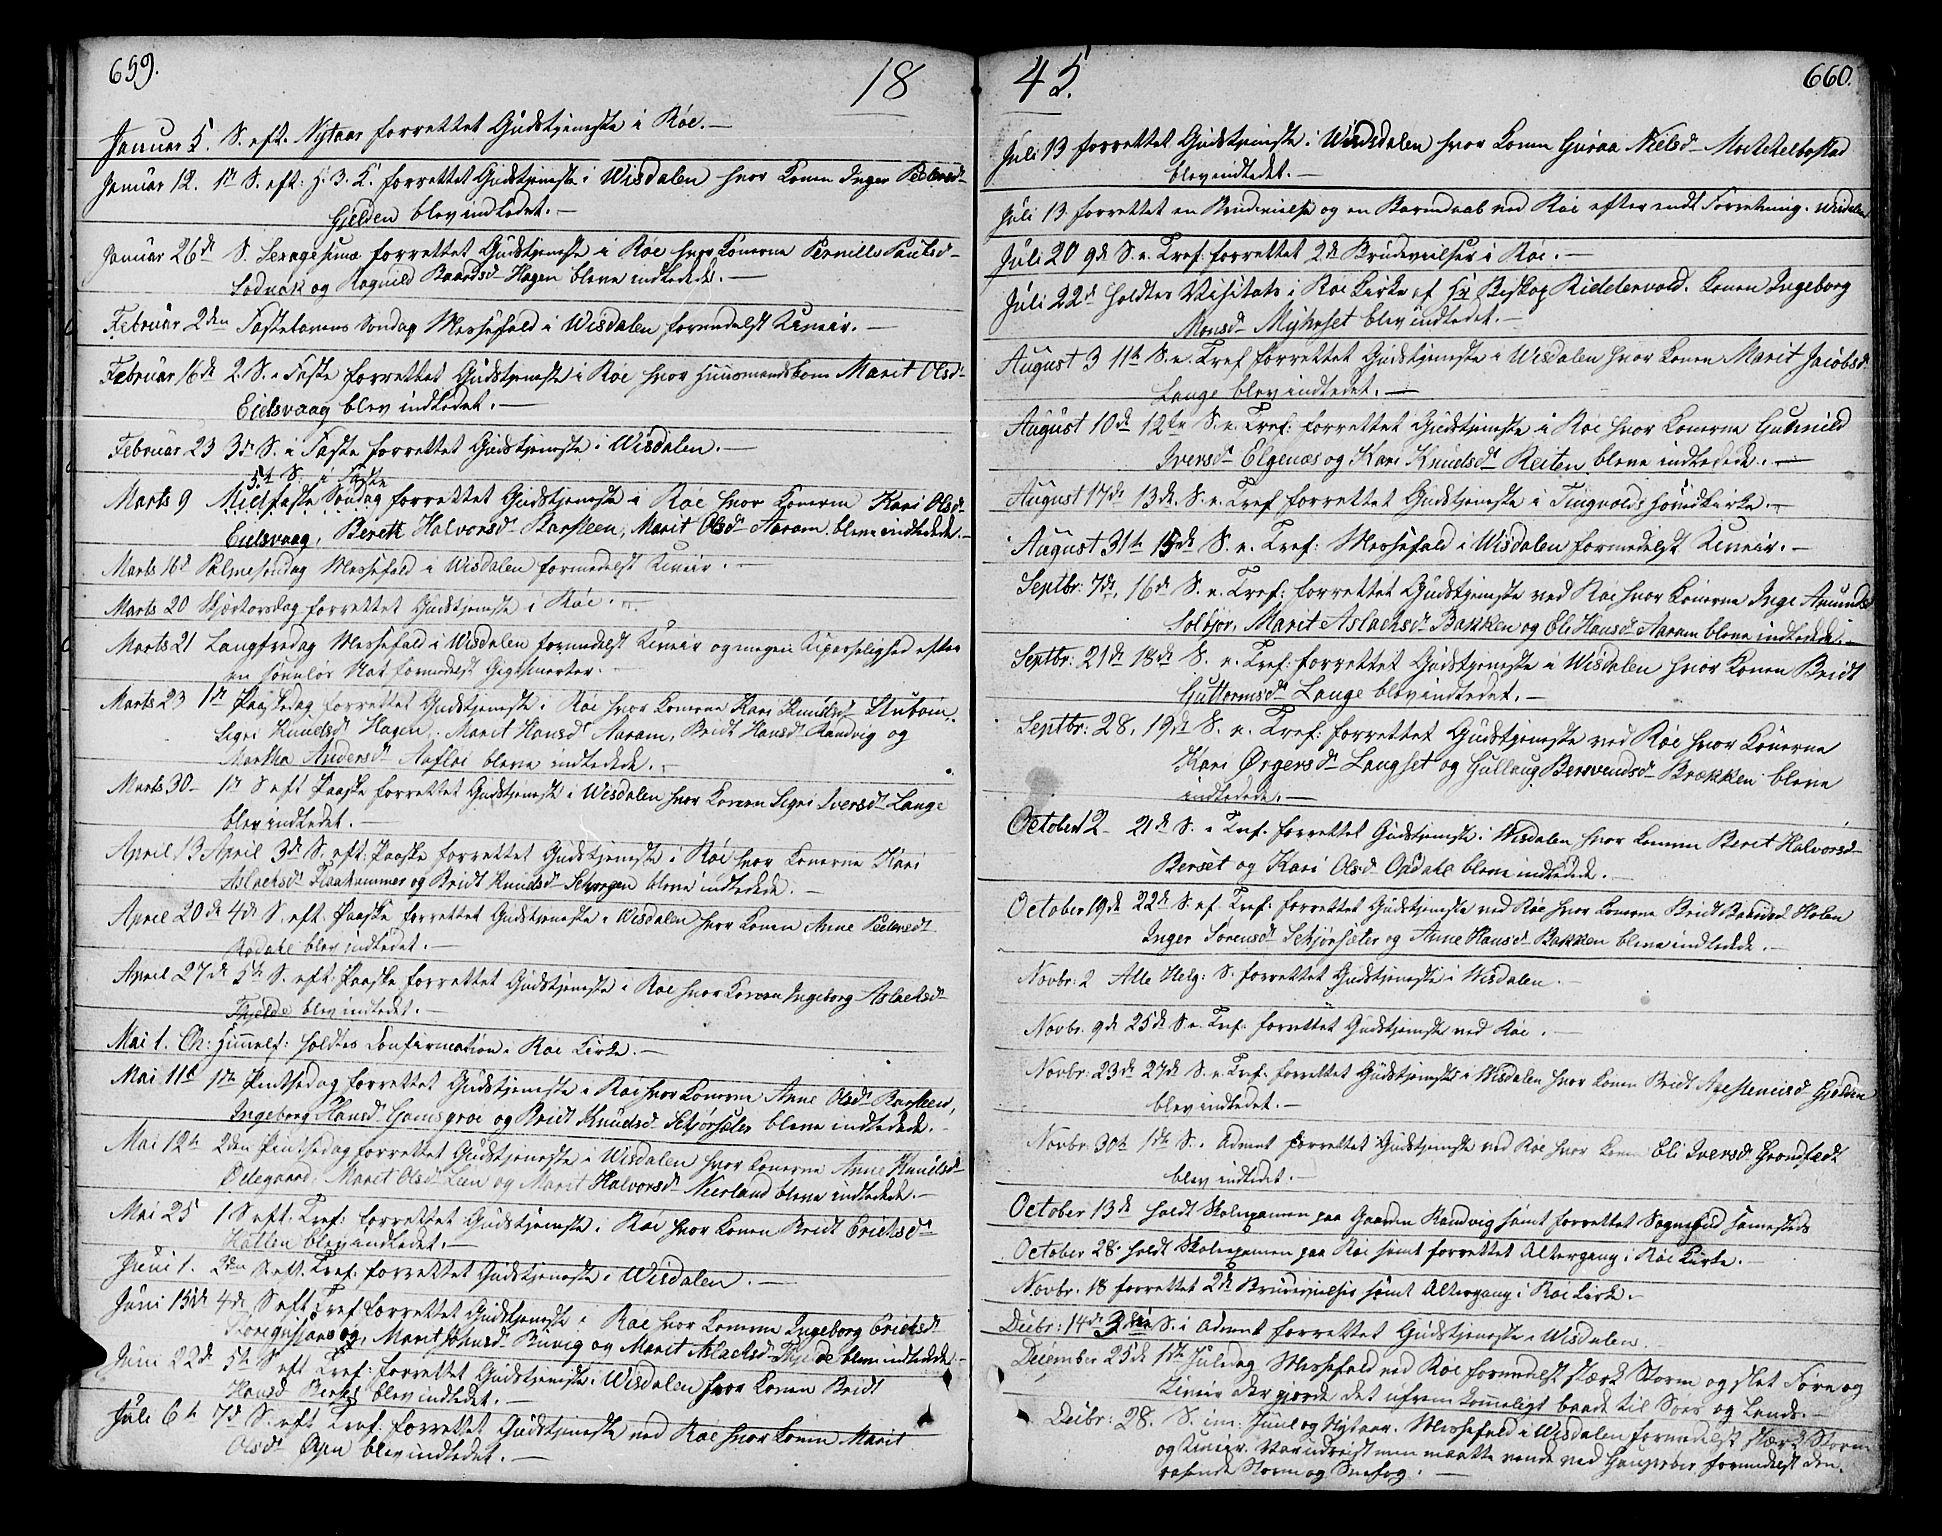 659.
18
Januar 5. S. eft. Nytaar forrettet Gudstjeneste i Røe.—
Januar 12. 1st S. eft: H. 3. K. forrettet Gudstjeneste i Wisdalen hvor Konen Inger Pedersd.
Gjelden blev indledet.—
Januar 26de S. Sexagesimæ forrettet Gudstjeneste i Røe hvor Konerne Pernille Paulsd.
Sodnak og Ragnild Baardsd. Hagen bleve indledede.—
Februar 2den Fastelavens Søndag Messefald i Wisdalen formedelst Uveir.—
Februar 16de 2. S. i Faste forrettet Gudstjeneste i Røe hvor Huusmandskone Marit Olsd.
Eidsvaag blev indledet.—
Februar 23 3die S. i Faste forrettet Gudstjeneste i Wisdalen.—
5te S. i Faste
Marts 9 Midfaste Søndag forrettet Gudstjeneste i Røe hvor Konerne Kari Olsd.
Eidsvaag, Bereth Halvorsd. Barsteen, Marit Olsd. Aaram bleve indledede.—
Marts 16d Palmesøndag Messefald i Wisdalen formedelst Uveir.—
Marts 20 Skjærtorsdag forrettet Gudstjeneste i Røe.—
Marts 21 Langfredag Messefald i Wisdalen formedelst Uveir og megen Upasselighed efter
en søvnløs Nat formedelst Gigtsmerter.—
Marts 23 1ste Paaskedag forrettet Gudstjeneste i Røe hvor Konerne Kari Knudsd.
Sigri Knudsd. Hagen, Marit Hansd. Aaram, Bridt Hansd. Randvig og
Martha Andersd. Aafløi bleve indledede.—
Marts 30— 1st S eft Paaske forrettet Gudstjeneste i Wisdalen hvor Konen Sigri Iversd. Lange
blev indledet.—
April 13 April 3de S. eft. Paaske forrettet Gudstjeneste i Røe hvor Konerne Kari
Aslachsd. Flaahammer og Bridt Knudsd. bleve indledede.—
April 20de 4de S. eft. Paaske forrettet Gudstjeneste i Wisdalen hvor Konen Anne Pedersd.
blev indledet.—
April 27de 5te S. eft. Paaske forrettet Gudstjeneste i Røe hvor Konen Ingeborg Aslachsd.
Tjelde blev indledet.—
Mai 1. Ch: Himelf: holdtes Confirmation i Røe Kirke.—
Mai 11te 1ste Pintsedag forrettet Gudstjeneste i Røe hvor Konerne Anne Olsd. Barsteen,
Ingeborg Hansd. og Bridt Knudsd. Schjørsæter bleve indledede.—
Mai 12te 2den Pintsedag forrettet Gudstjeneste i Wisdalen hvor Konerne Anne Knudsd.
Ødegaard, Marit Olsd. Lien og Marit Halvorsd. Neerland bleve indledede.—
Mai 25 1 S eft. Tref: forrettet Gudstjeneste i Røe hvor Konen Bridt Erichsd.
Hatlen blev indledet.—
Juni 1. 2den S. eft. Tref: forrettet Gudstjeneste i Wisdalen.—
Juni 15de 4de S eft Tref forrettet Gudstjeneste i Røe hvor Konerne Ingeborg Erichsd.
Marit Johnsd. Bugvig og Marit Aslachsd. Tjelde bleve indledede.—
Juni 22de 5te S eft Tref: forrettet Gudstjeneste i Wisdalen hvor Konen Bridt
Hansd. blev indledet.—
Juli 6te 7de S. eft Tref. forrettet Gudstjeneste ved Røe hvor Konen Marit
Olsd. blev indledet.—
45.
660.
Juli 13 forrettet Gudstjeneste i Wisdalen hvor Konen Guraa Nielsd.
blev indledet.—
Juli 13. forrettet en Brudevielse og en Barndaab ved Røe efter endt Forretning i Wisdalen
Juli 20 9de S. e. Tref: forrettet 2de Brudevielser i Røe.—
Juli 22de holdtes Visitats i Røe Kirke af Hr Biskop Riddervold. Konen Ingeborg
Monsd. Myhrset blev indledet.—
August 3 11te S. e. Tref forrettet Gudstjeneste i Wisdalen hvor Konen Marit Jacobsd.
Lange blev indledet.—
August 10de 12te S. e. Tref: forrettet Gudstjeneste i Røe hvor Konerne Gudnild
Iversd. Elgenæs og Kari Knudsd. Reiten bleve indledede.—
August 17de 13de S. e. Tref forrettet Gudstjeneste i Tingvolds Hovedkirke.—
August 31te 15de S. e. Tref: Messefald i Wisdalen formedelst Uveir.—
Septbr: 7de, 16de S. e. Tref: forrettet Gudstjeneste ved Røe hvor Konerne Inge Amunds
Solbjør, Marit Aslachsd. Bakken og Eli Hansd. Aaram bleve indledede.—
Septbr: 21de 18de S. e. Tref: forrettet Gudstjeneste i Wisdalen hvor Konen Bridt
Guttormsd. Lange blev indledet.—
Septbr: 28, 19de S. e. Tref: forrettet Gudstjeneste ved Røe hvor Konerne
Kari Ørgersd. Langset og Gullaug Bersvendsd. Brækken bleve
indledede.—
October 12— 21de S. e Tref. forrettet Gudstjeneste i Wisdalen hvor Konerne Berit Halvorsd.
Berset og Kari Olsd. Opdale bleve indledede.—
October 19de 22de S. ef. Tref: forrettet Gudstjeneste ved Røe hvor Konerne Bridt Baardsd. Holen
Inger Sørensd. Schjørsæter og Anne Hansd. Bakken bleve indledede.—
Novbr: 2 Alle Helg: S. forrettet Gudstjeneste i Wisdalen.—
Novbr. 9de 25de S. e. Tref: forrettet Gudstjeneste ved Røe.—
Novbr: 23de 27de S. e. Tref. forrettet Gudstjeneste i Wisdalen hvor Konen Bridt Gjelden
blev indledet.—
Novbr. 30te 1ste S. i Advent forrettet Gudstjeneste ved Røe hvor Konen Eli Iversd. Grønsæt
blev indledet.—
October 13de holdt Skoleexamen paa Gaarden Randvig samt forrettet Sognebud samesteds
October 28. holdt Skoleexamen paa Røe samt forrettet Altergang i Røe Kirke.—
Novbr. 18 forrettet 2de Brudevielser samt Altergang i Røe Kirke.—
Decbr: 14de 3die S. i Advent forrettet Gudstjeneste i Wisdalen.
December 25de 1ste Juledag Messefald ved Røe formedelst stærk Storm og slet Føre og
Uveir der gjorde det ufremkommeligt baade til Søes og Lands.—
Decbr: 28. S. im: Juul og Nytaar. Messefald i Wisdalen formedelst stærk Storm
og Uveir. Var udreist men maatte vende ved formedelst den
rasende Storm og Snefog.—